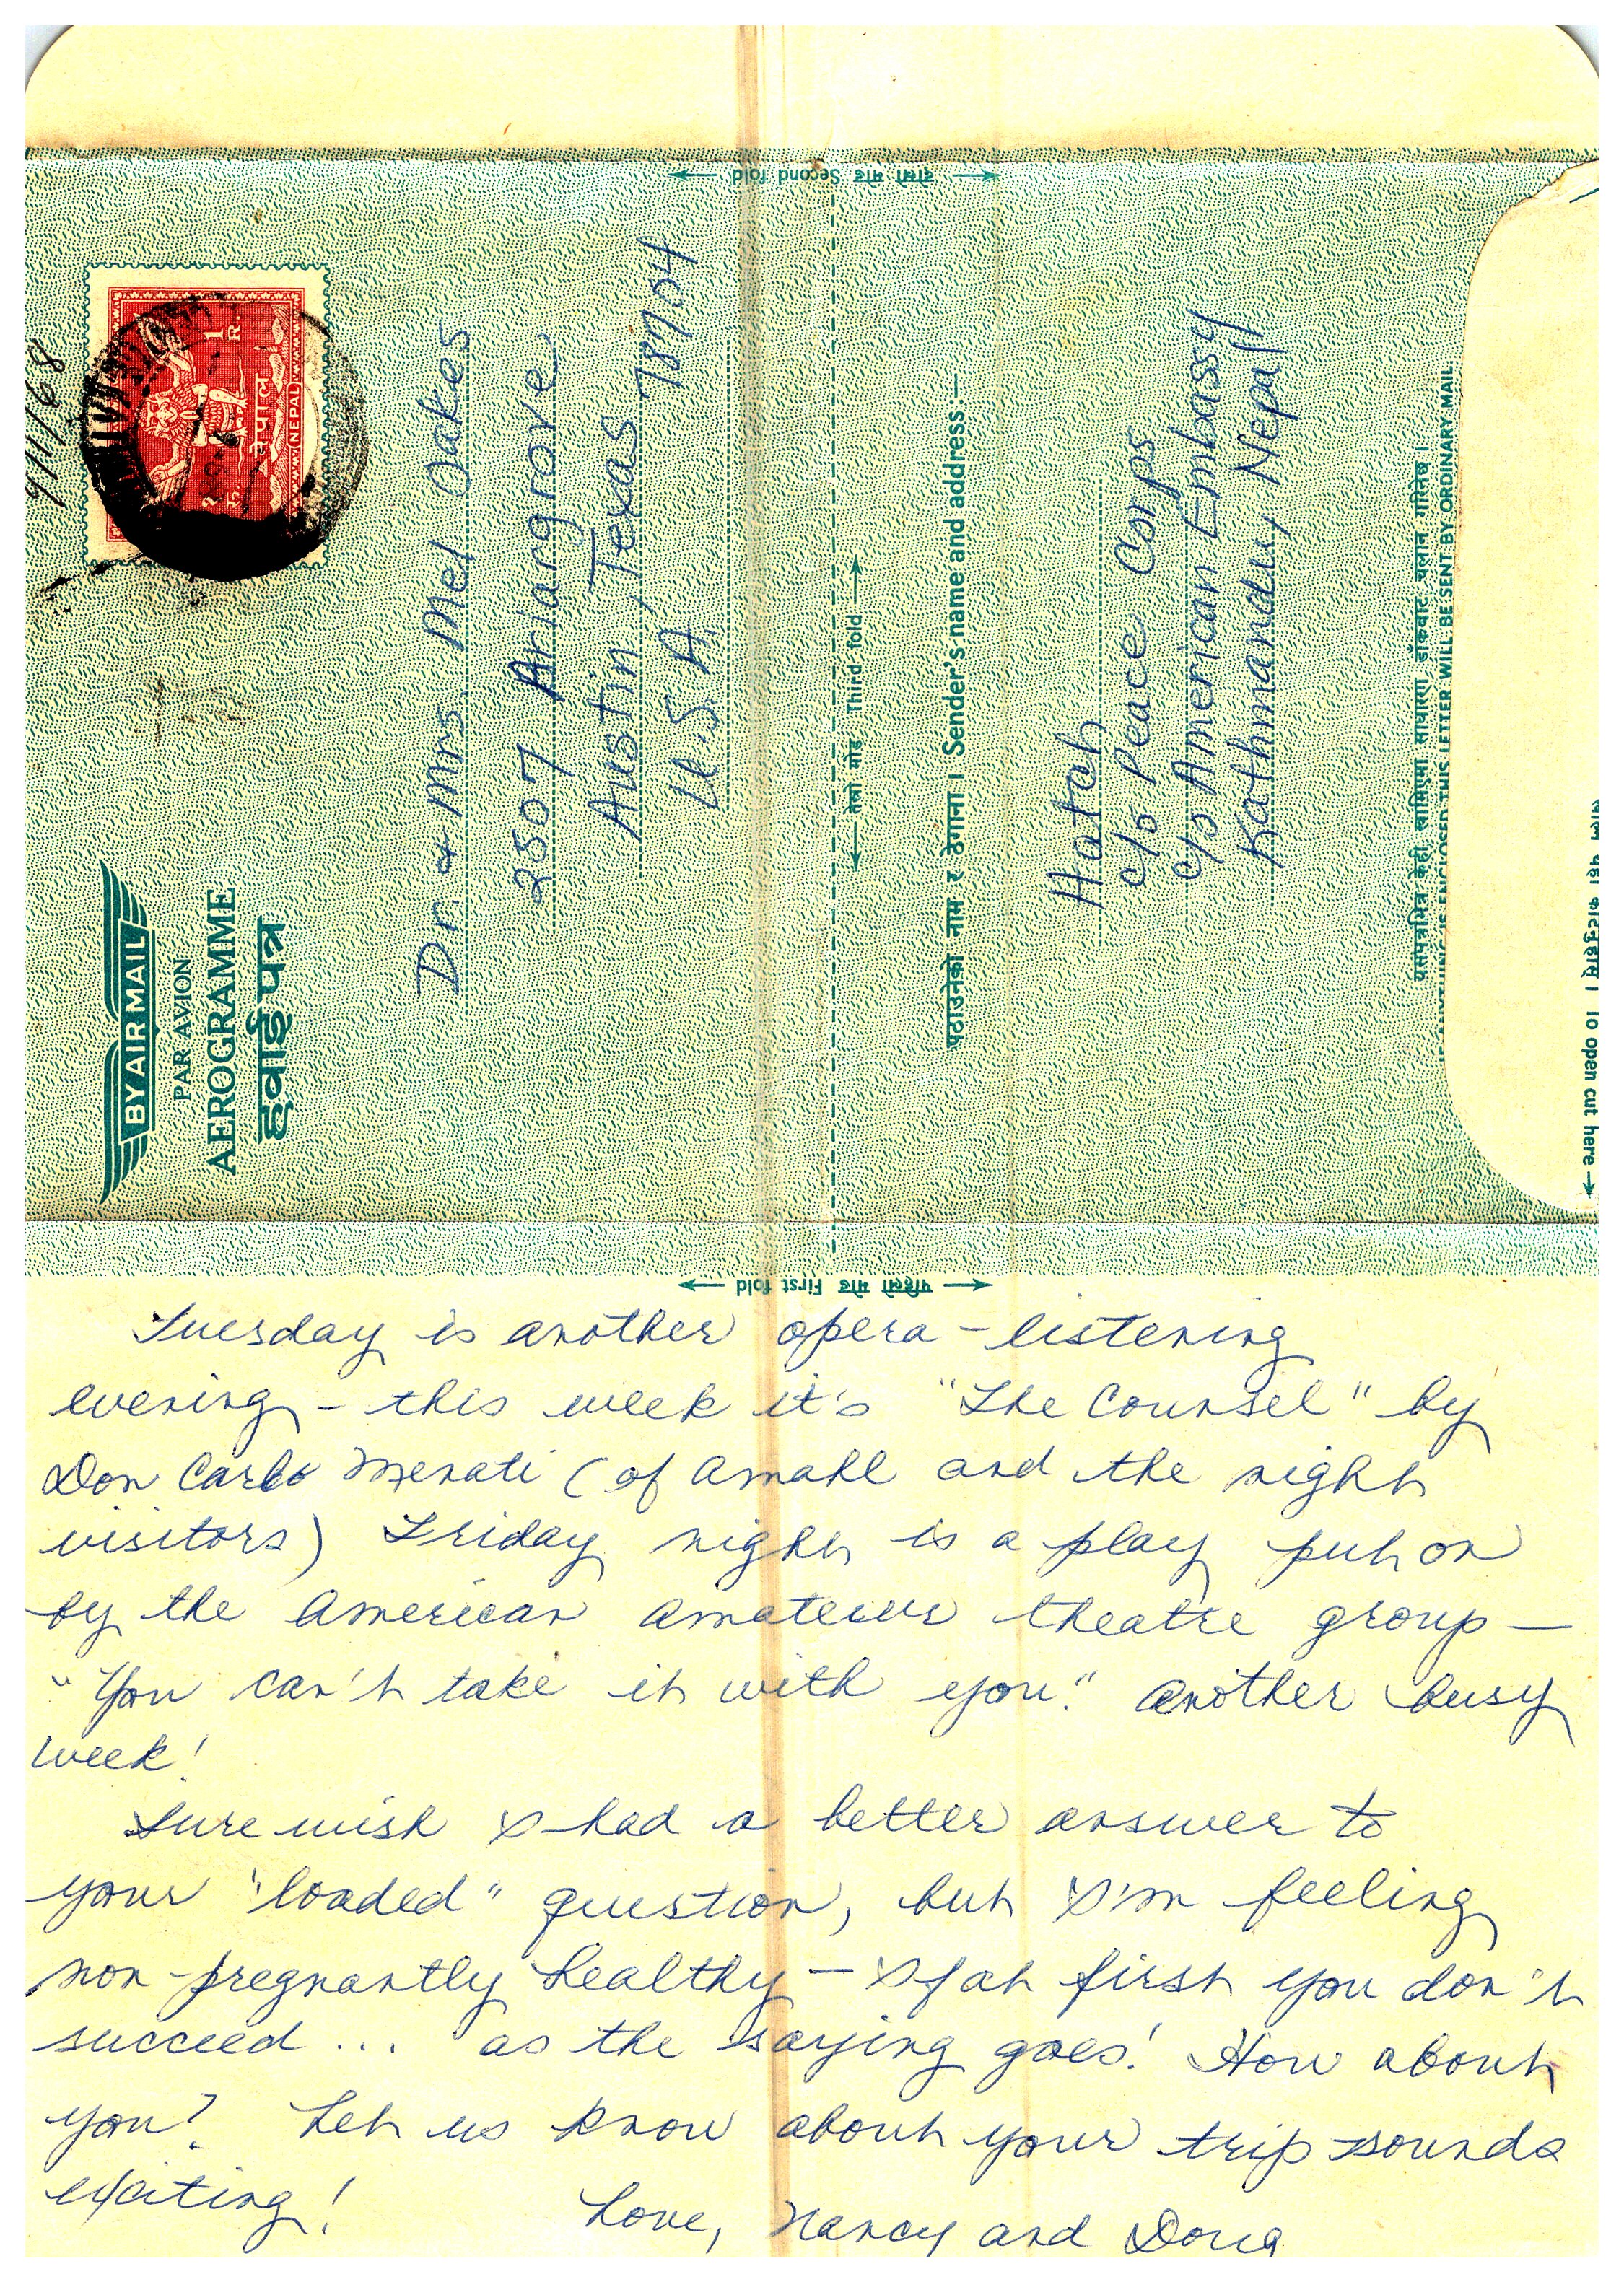 दोस्रो मोड Second fold
9/1/68
1 R.
नेपाल
NEPAL
BY AIR MAIL
PAR AVION
AEROGRAMME
हवाई पत्र
Dr. & Mrs. Mel Oakes
2507 Ariagrove
Austin, Texas 78704
U.S.A.
तेस्रो मोड Third fold
पठाउनेको नाम र ठेगाना । Sender's name and address:—
Hatch
c/o Peace Corps
c/o American Embassy
Kathmandu, Nepal
यसपत्रभित्र केही खामिएमा साधारण डाँकबाट चलान गरिनेछ ।
IS ENCLOSED THIS LETTER WILL BE SENT BY ORDINARY MAIL
To open cut here
पहिलो मोड First fold
Tuesday is another opera-listening
evening - this week it's "The Counsel" by
Don Carlo Menati (of Amahl and the night
visitors) Friday night is a play put on
by the American Amateur theatre group —
"You can't take it with you." Another busy
week!
Sure wish I had a better answer to
your "loaded" question, but I'm feeling
non-pregnantly healthy — If at first you don't
succeed ... as the saying goes! How about
you? Let us know about your trip sounds
exciting!
Love, Nancy and Doug